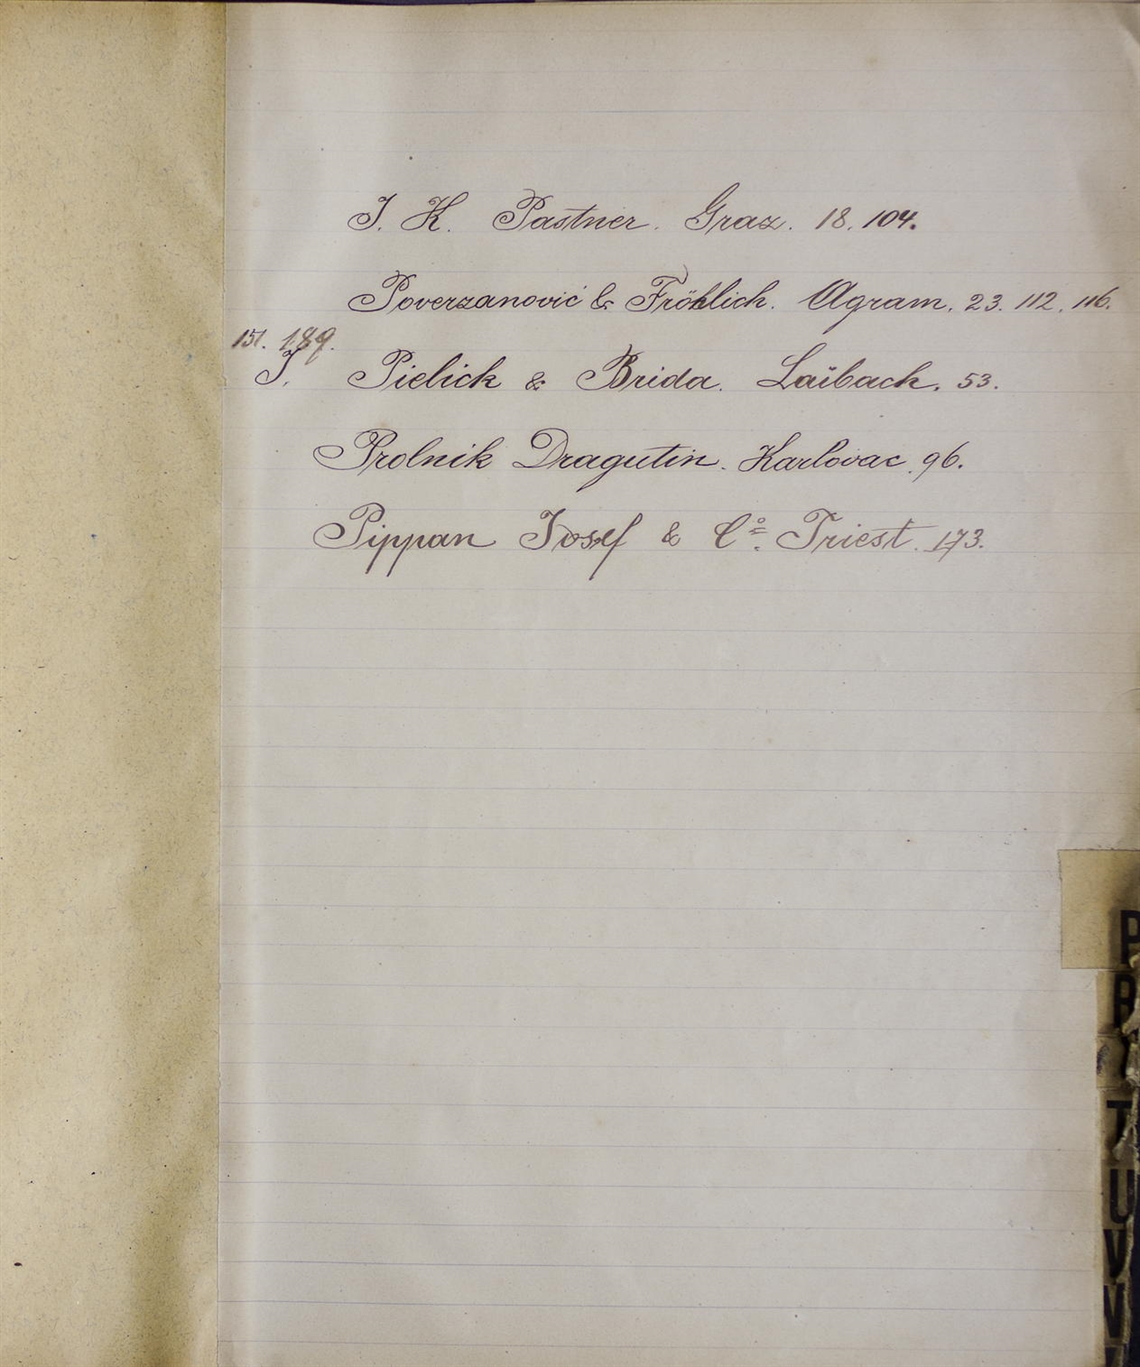 J. K. Pastner. Graz. 18. 104.
Poverzanović & Fröhlich. Agram. 23. 112. 116.
151. 189.
J. Pielick & Brida. Laibach. 53.
Prolnik Dragutin. Karlovac. 96.
Pippan Josef & Cº. Triest. 173.
P
R
T
U
V